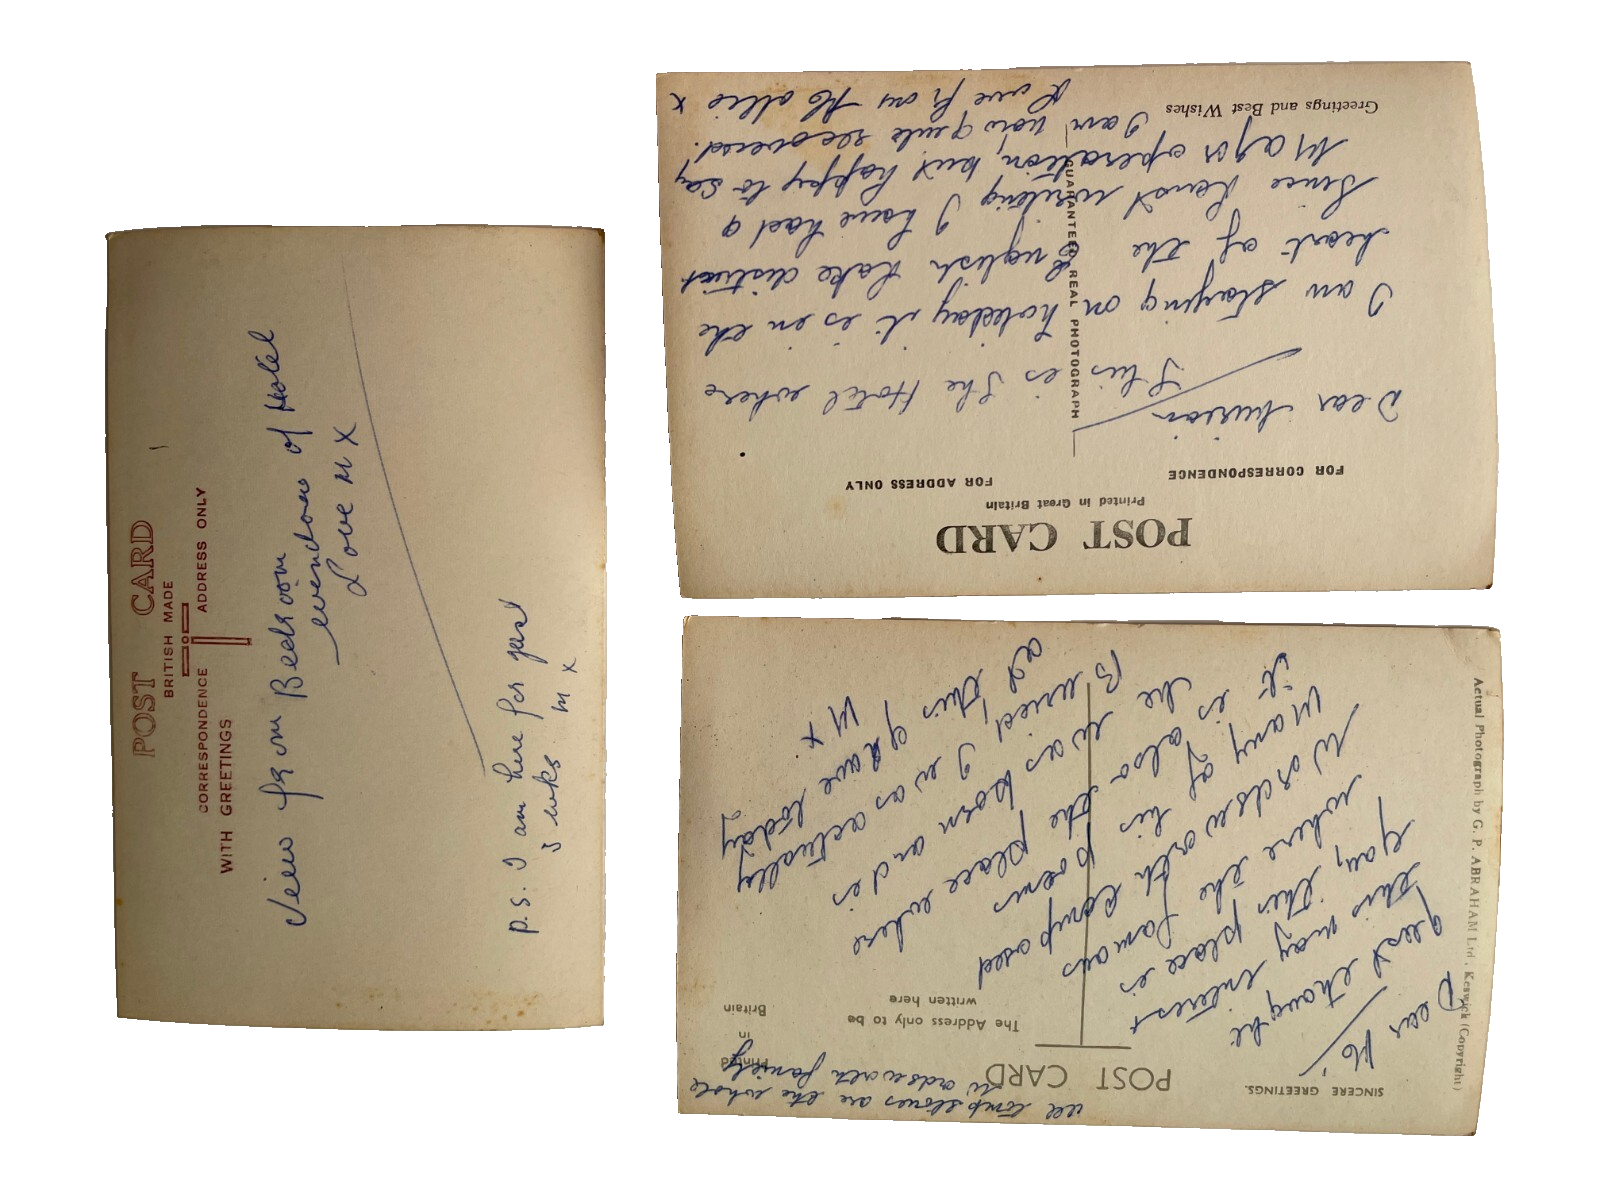 POST CARD
BRITISH MADE
CORRESPONDENCE
ADDRESS ONLY
WITH GREETINGS
View from Bedroom
windows of Hotel
Love M x
P.S. I am here for just
3 wks M x
POST CARD
Printed in Great Britain
FOR CORRESPONDENCE
FOR ADDRESS ONLY
Dear
This is the Hotel where
I am staying on holiday it is in the
heart of the English Lake district
Since last writing I have had a
Major operation, but happy to say
I am now quite recovered.
Love from Mo
x
GUARANTEED REAL PHOTOGRAPH
Greetings and Best Wishes
SINCERE GREETINGS.
POST CARD
Printed
in
Britain
The Address only to be
written here
Dear Mo
Just thought
this may interest
you, this place is
where the famous
Wordsworth composed
many of his poems
it is also the place where
he was born and is
Buried, I was actually
at this grave today
M x
all tomb stones are the whole
Wordsworth family
Actual Photograph by G. P. ABRAHAM Ltd., Keswick (Copyright)